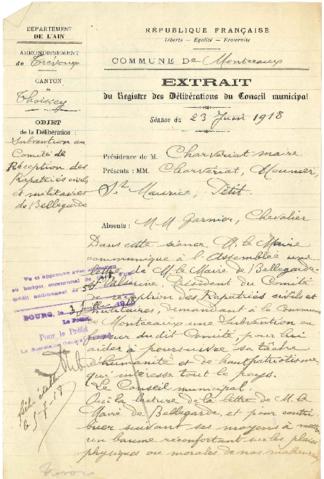 DÉPARTEMENT
DE L'AIN
ARRONDISSEMENT
de Trévoux
CANTON
de Thoissey
OBJET
de la Délibération :
Subvention au
Comité de
Réception des
Rapatriés civils
et militaires
de Bellegarde
RÉPUBLIQUE FRANÇAISE
Liberté - Égalité - Fraternité
COMMUNE De Montceaux
EXTRAIT
du Registre des Délibérations du Conseil municipal
Séance du 23 Juin 1918
Présidence de M. Charvériat maire
Présents : MM. Charvériat, Meunier,
St Maurice, Petit.
Absents : M M Garnier, Chevalier
Dans cette séance, M. le Maire
communique à l'Assemblée une
lettre de M. le Maire de Bellegarde-
Valserine, Président du Comité
de réception des Rapatriés civils et
militaires, demandant à la Commune
de Montceaux une Subvention au
dudit Comité, pour lui
aider à poursuivre sa tâche
d'humanité et de haut patriotisme
qui intéresse tout le pays.
Le Conseil municipal.
Ouï la lecture de la lettre de M. le
Maire de Bellegarde, et pour contri
buer suivant ses moyens à mettre
un baume réconfortant sur les plaies
physiques ou morales de nos malheureux
Vu et approuvé
BOURG, le 3
Le Préfet
Pour le Préfet